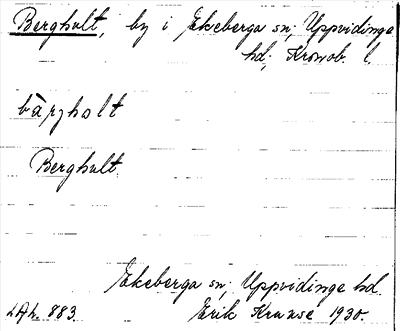 Berghult, by i Ekeberga sn, Uppvidinge
hd, Kronob. l.
bàrjholt
Berghult
Ekeberga sn, Uppvidinge hd.
Erik Krause 1930.
LAL. 883.